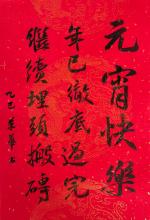 元宵快樂
年已徹底過完
繼續埋頭搬磚
乙巳